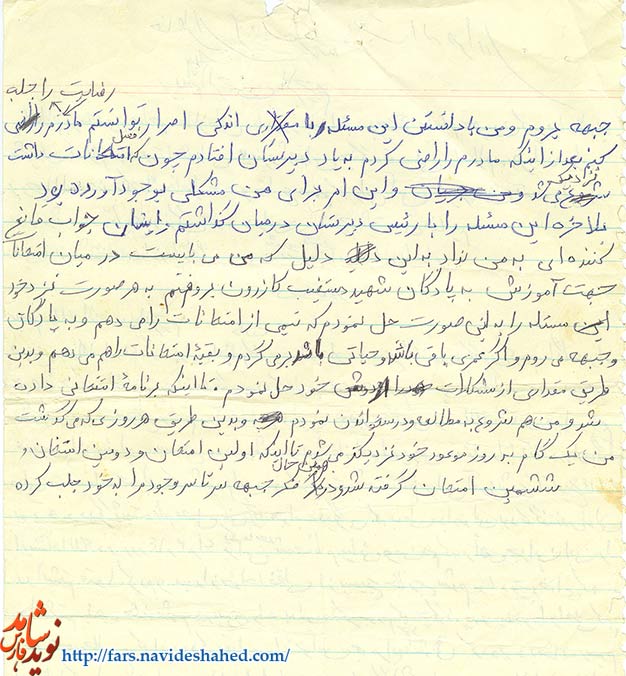 رضایت را جلب
جبهه بروم و من با دانستن این مسئله با مقداری اندکی اصرار توانستم مادرم راضی
کنم بعد از اینکه مادرم را راضی کردم به یاد دبیرستان افتادم چون که فصل امتحانات داشت
نزدیک می شد و من جریان و این امر برای من مشکلی بوجود آورده بود
بلاخره این مسئله را با رئیس دبیرستان درمیان گذاشتم ایشان جواب مانع
کننده ای به من نداد به این دلیل که من می بایست در میان امتحانات
جهت آموزش به پادگان شهید دستغیب کازرون بروم به هر صورت نزد خود
این مسئله را به این صورت حل نمودم که نیمی از امتحانات را می دهم و به پادگان
و جبهه می روم و اگر عمری باقی باشد و حیاتی باشد بر می گردم و بقیۀ امتحانات را هم می دهم و بدین
طریق مقداری از مشکلات خود حل نمودم تا اینکه برنامۀ امتحانی داده
شد و من هم شروع به مطالعه و درس خواندن نمودم و بدین طریق هر روزی که می گذشت
من یک گام به روز موعود خود نزدیکتر می شوم تا اینکه اولین امتحان و دومین امتحان و
ششمین امتحان گرفته شد و در همین حال فکر جبهه سر تا سر وجود مرا به خود جلب کرده
نوید شاهد فارس
http://fars.navideshahed.com/